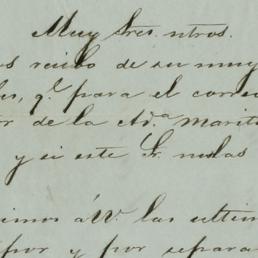 Muy Sres. ntros.
os recibo de su muy
es, q.e para el corre
or de la Ad.a Marit
y si este Sr. no las
imos á V. las ultim
por y por separa